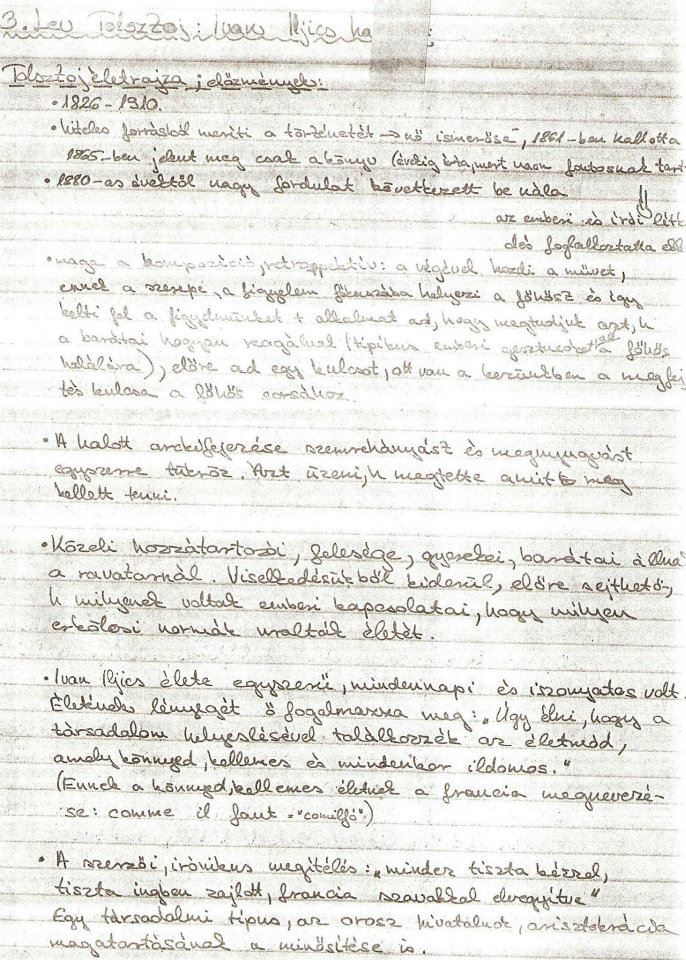 3. Lev Tolsztoj: Ivan Iljics ha
Tolsztoj életrajza, előzmények:
• 1826 - 1910.
• hiteles forrásból meríti a történetét → nő ismerőse, 1861-ben hallotta
1865-ben jelent meg csak a könyv (évekig írta, mert nagyon fontosnak tart
• 1880-as évektől nagy fordulat következett be nála
⇓
az emberi és írói lét
dés foglalkoztatta
• maga a kompozíció, retrospektív: a végével kezdi a művet,
ennek a szerepe, a figyelem fókuszába helyezi a főhőst és így
kelti fel a figyelmünket + alkalmat ad, hogy megtudjuk azt, h
a barátai hogyan reagálnak (tipikus emberi gesztusok a főhős
halálára), előre ad egy kulcsot, ott van a kezünkben a megfej
tés kulcsa a főhős sorsához.
• A halott arckifejezése szemrehányást és megnyugvást
egyszerre tükröz. Azt üzeni, h megtette amit meg
kellett tenni.
• Közeli hozzátartozói, felesége, gyerekei, barátai állna
a ravatalnál. Viselkedésükből kiderül, előre sejthető,
h milyenek voltak emberi kapcsolatai, hogy milyen
erkölcsi normák uralták életét.
• Ivan Iljics élete egyszerű, mindennapi és iszonyatos volt.
Életének lényegét ő fogalmazza meg: „Úgy élni, hogy a
társadalom helyeslésével találkozzék az életmód,
amely könnyed, kellemes és mindenkor ildomos."
(Ennek a könnyed, kellemes életnek a francia megnevezé-
se: comme il faut = "comilfó".)
• A szerzői, irónikus megítélés: „minden tiszta kézzel,
tiszta ingben zajlott, francia szavakkal elvegyítve"
Egy társadalmi típus, az orosz hivatalnok, arisztokrácia
magatartásának a minősítése is.